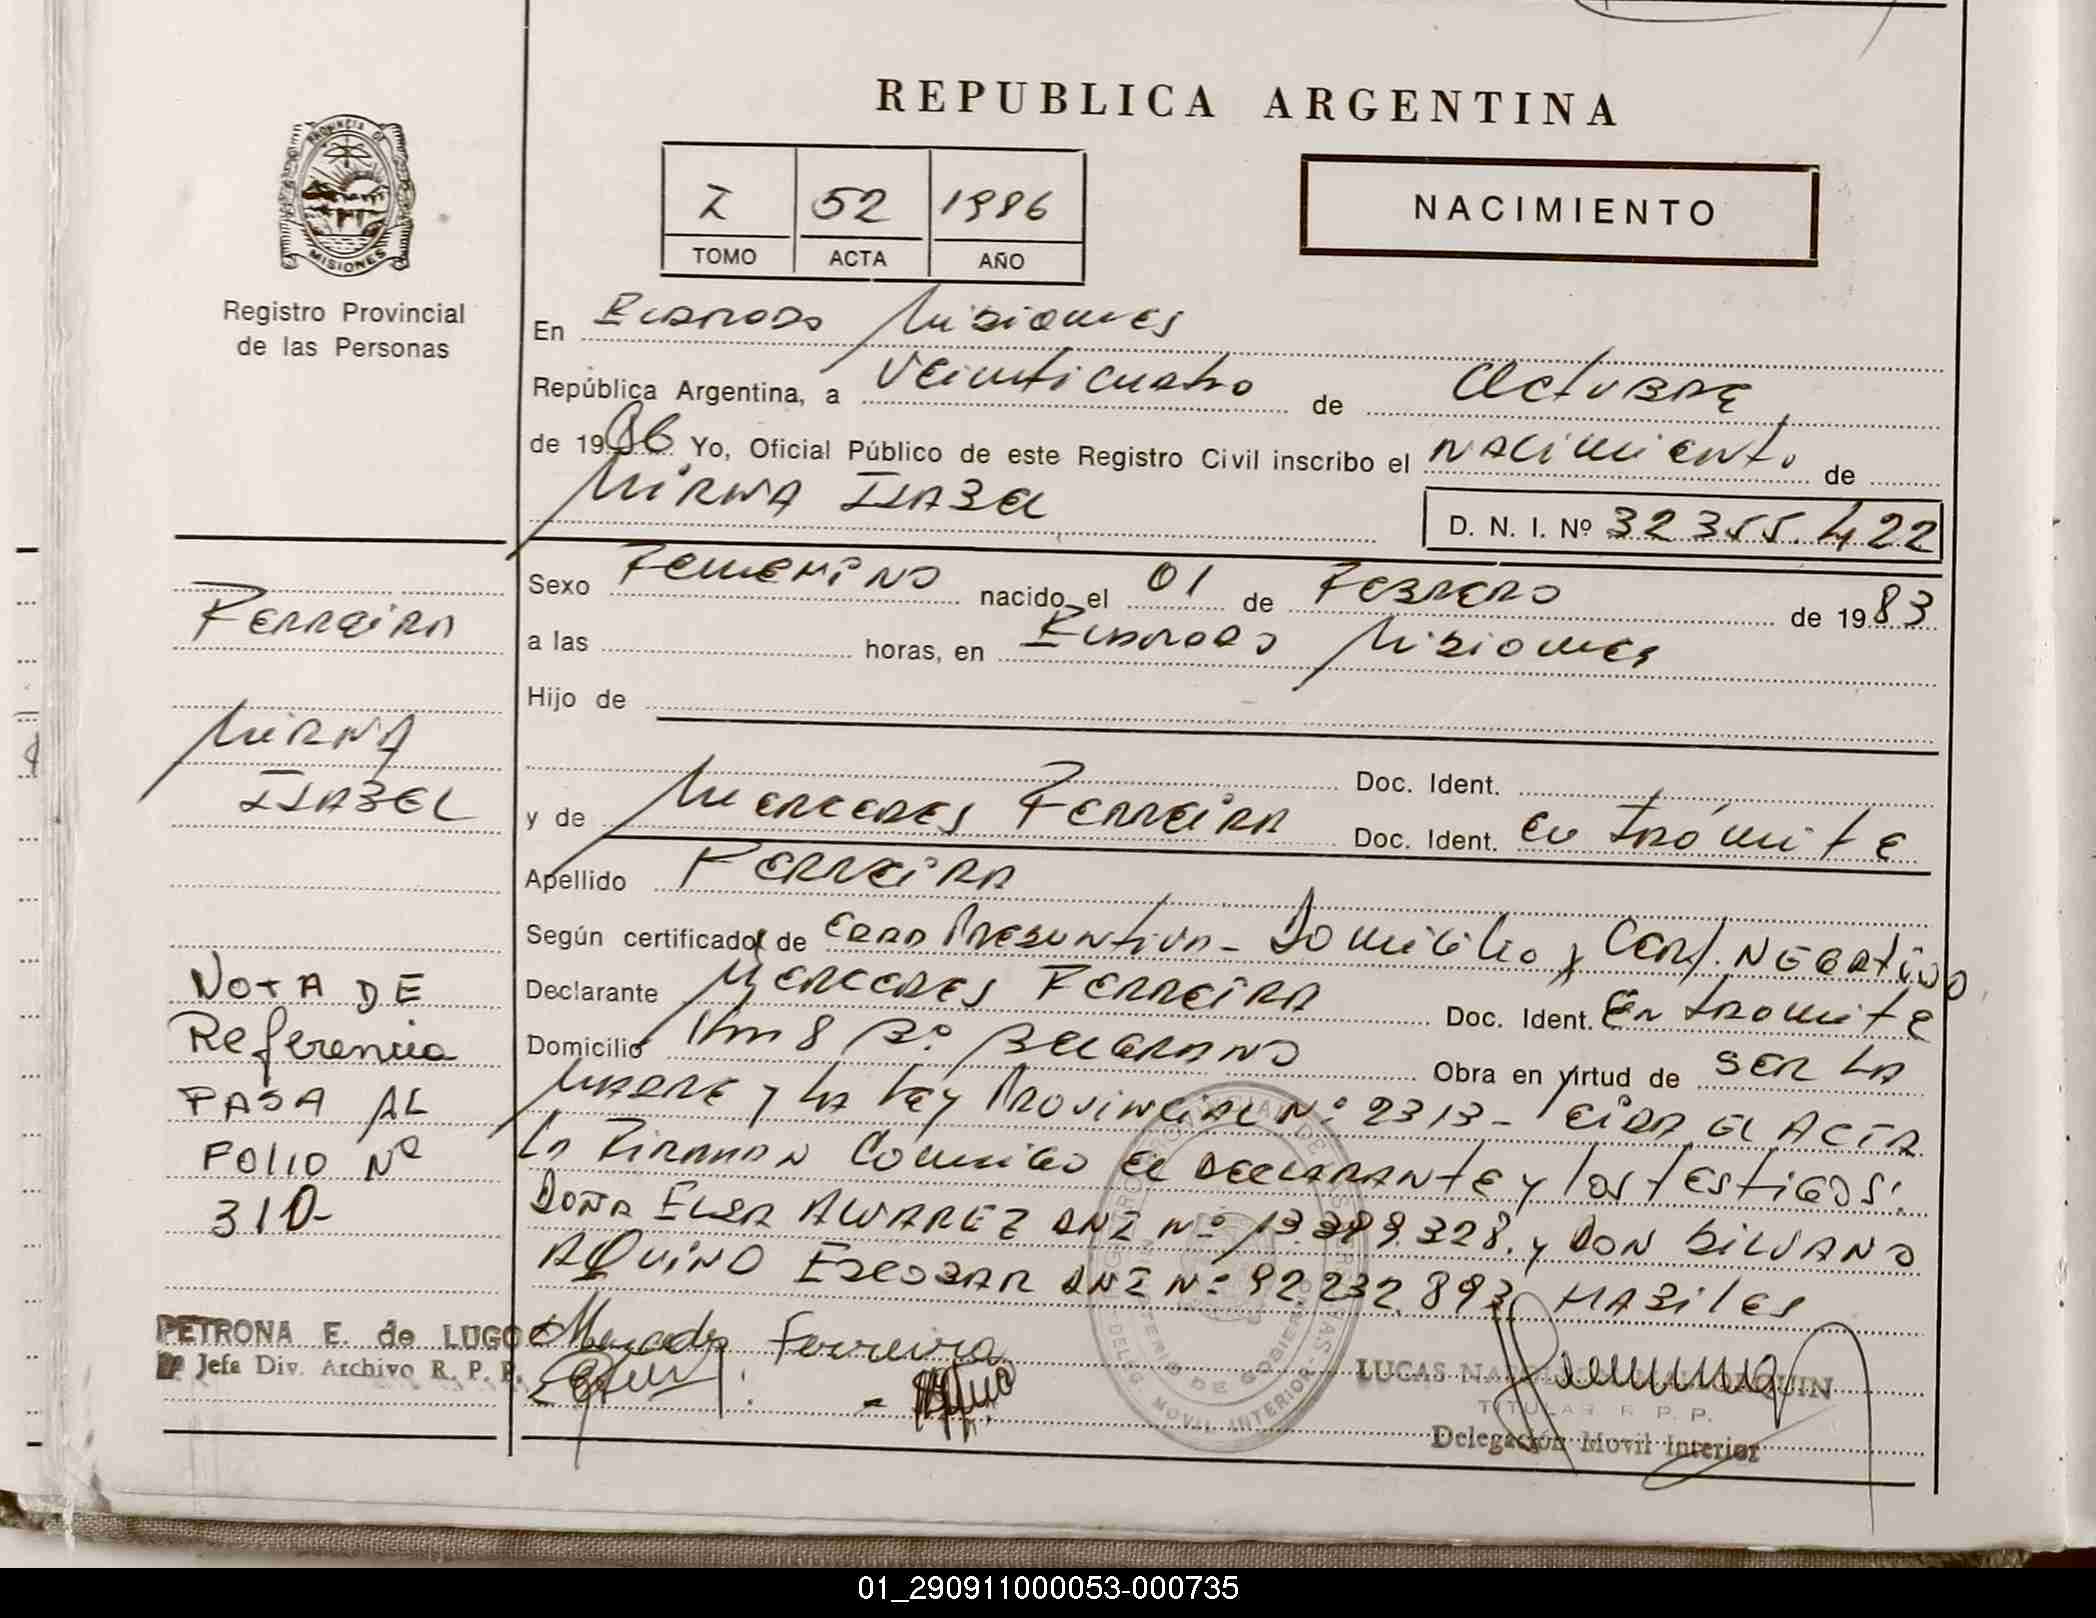 REPUBLICA ARGENTINA
PROVINCIA DE
MISIONES
Registro Provincial
de las Personas
I 52 1986
TOMO ACTA AÑO
NACIMIENTO
En Eldorado Misiones
República Argentina, a Veinticuatro de Octubre
de 1986 Yo, Oficial Público de este Registro Civil inscribo el nacimiento de
Mirna Isabel
D. N. I. Nº 32.355.422
Sexo Femenino nacido el 01 de Febrero de 1983
a las horas, en Eldorado Misiones
Hijo de
Doc. Ident.
y de Mercedes Ferreira Doc. Ident. en trámite
Apellido Ferreira
Según certificado de Edad Presuntiva - Domicilio y Cert. Negativo
Declarante Mercedes Ferreira Doc. Ident. En tramite
Domicilio Km 8 Bº Belgrano Obra en virtud de ser la
madre y la Ley Provincial Nº 2313 - Leida el Acta
la Firman Conmigo el declarante y los testigos:
Doña Elsa Alvarez DNI Nº 13.389.328. y Don Silvano
Aquino Escobar DNI Nº 92.232.893 Habiles
Mercedes Ferreira
Ferreira
Mirna
Isabel
Nota de
Referencia
PASA AL
FOLIO Nº
310-
PETRONA E. de LUGO
Jefa Div. Archivo R. P. P.
LUCAS
TITULAR R. P. P.
Delegación Movil Interior
DELEG. MOVIL INTERIOR
MINISTERIO DE GOBIERNO
01_290911000053-000735